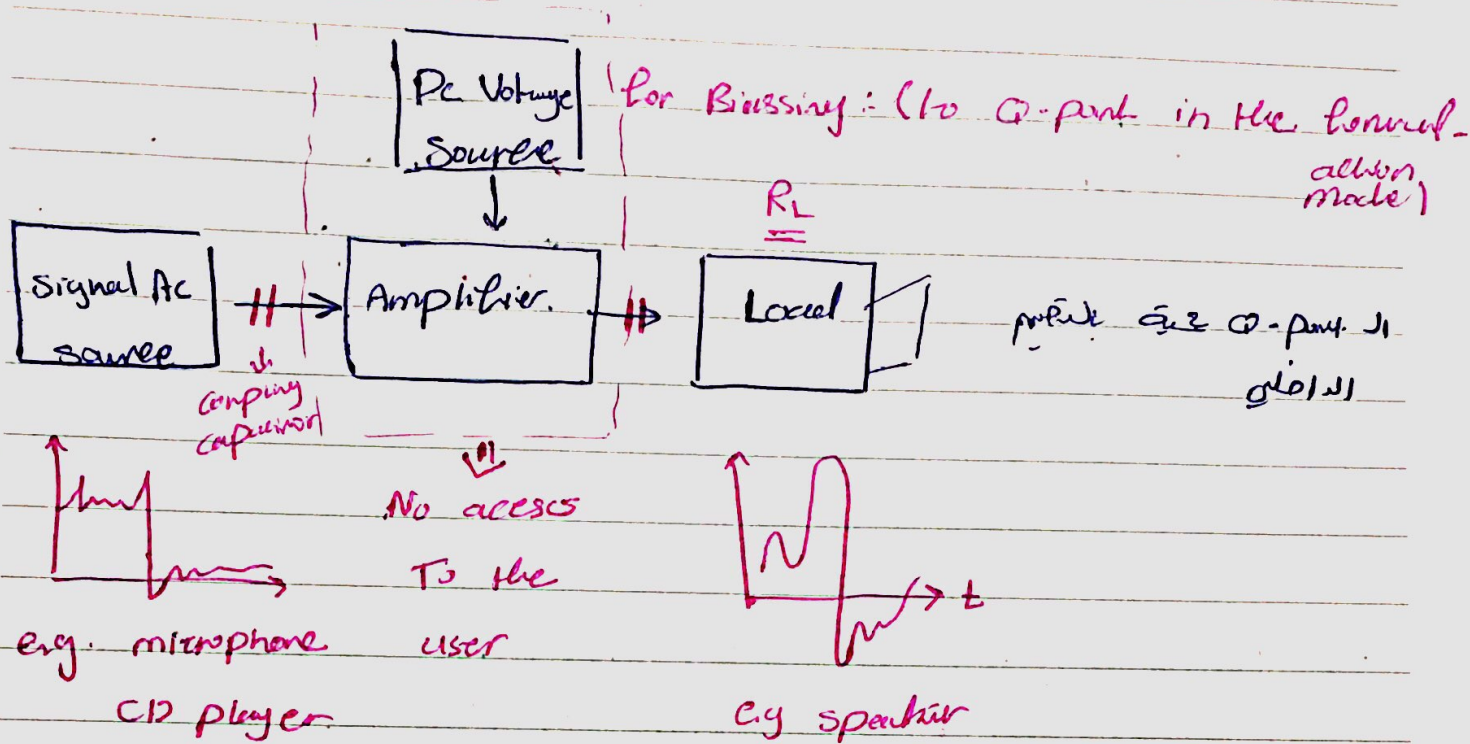 Dc Voltage
Source
for Biassing: (to Q-point in the forward-
action
mode)
RL
Signal Ac
source
Amplifier.
Load
ال Q-point
الداخلي
coupling
capacitor
No acescs
To the
user
t
e.g. microphone
CD player
e.g speaker